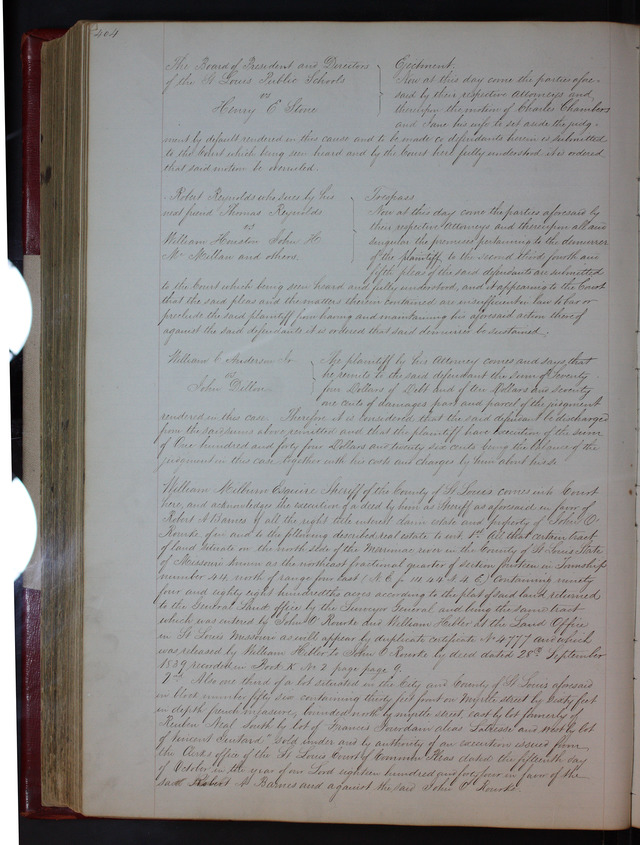 404
The Board of President and Directors
of the St Louis Public Schools
vs
Henry C Stone
Ejectment.
Now at this day come the parties afore-
said by their respective Attorneys and
thereupon the motion of Charles Chambers
and Jane his wife to set aside the judg-
ment by default rendered in this cause and to be made co defendants herein is submitted
to the Court which being seen heard and by the Court here fully understood it is ordered
that said motion be overruled.
Robert Reynolds who sues by his
next friend Thomas Reynolds
vs
William Houston John H.
McMillan and others.
Trespass
Now at this day come the parties aforesaid by
their respective Attorneys and thereupon all and
singular the premises pertaining to the demurrer
of the plaintiff, to the second third fourth and
fifth pleas of the said defendants are submitted
to the Court which being seen heard and fully understood, and it appearing to the Court
that the said pleas and the matters therein contained are insufficient in law to bar or
preclude the said plaintiff from having and maintaining his aforesaid action thereof
against the said defendants it is ordered that said demurrer be sustained.
William C Anderson Jr
vs
John Dillon
The plaintiff by his Attorney comes and says, that
he remits to the said defendant the sum of Seventy
four Dollars of Debt and of ten Dollars and seventy
one cents of damages part and parcel of the judgment
rendered in this case. Therefore it is considered that the said defendant be discharged
from the said sums above remitted and that the plaintiff have execution of the
of One hundred and forty four Dollars and twenty six cents being the balance of the
judgment in this case together with his costs and charges by him about
William Milburn Esquire Sheriff of the County of St Louis comes into Court
here, and acknowledges the execution of a deed by him as Sheriff as aforesaid in favor of
Robert A Barnes of all the right title interest claim estate and property of John O'
Rourke of in and to the following described real estate to wit. 1st All that certain tract
of land situate on the north side of the Merrimac river in the County of St Louis State
of Missouri known as the northeast fractional quarter of section fourteen in Township
number 44, north of range four East (N. E. fr. 14. 44. 4. E) Containing ninety
four and eighty eight hundredths acres according to the plat of said land returned
to the General Land office by the Surveyor General and being the same tract
which was entered by John O Rourke and William Hiller at the Land Office
in St Louis Missouri as will appear by duplicate certificate No 4777 and which
was released by William Hiller to John O Rourke by deed dated 28th September
1839 recorded in Book K No 2 page page 9.
2nd Also one third of a lot situated in the City and County of St Louis aforesaid
in block number fifty six containing thirty feet front on Myrtle street by sixty feet
in depth french measure, bounded north by myrtle street, east by lot formerly of
Reuben Neal South by lot of Francis alias and West by lot
of Vincent Sold under and by authority of an execution issued from
the Clerks office of the St Louis Court of Common Pleas dated the fifteenth day
of October in the year of our Lord eighteen hundred and forty four in favor of the
said Robert A Barnes and against the said John O' Rourke